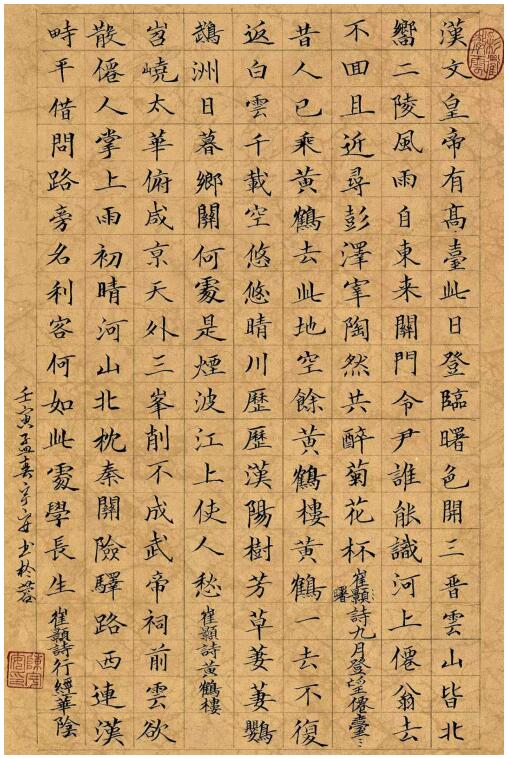 漢文皇帝有髙臺此日登臨曙色開三晋雲山皆北
嚮二陵風雨自東来關門令尹誰能識河上僊翁去
不囬且近尋彭澤宰陶然共醉菊花杯崔顥詩九月登望僊臺
曙
昔人已乘黃鶴去此地空餘黃鶴樓黃鶴一去不復
返白雲千載空悠悠晴川歷歷漢陽樹芳草萋萋鸚
鵡洲日暮鄉關何處是煙波江上使人愁崔顥詩黃鶴樓
岧嶢太華俯咸京天外三峯削不成武帝祠前雲欲
散僊人掌上雨初晴河山北枕秦關險驛路西連漢
畤平借問路旁名利客何如此處學長生崔顥詩行經華陰
壬寅孟春宇安书於蓉